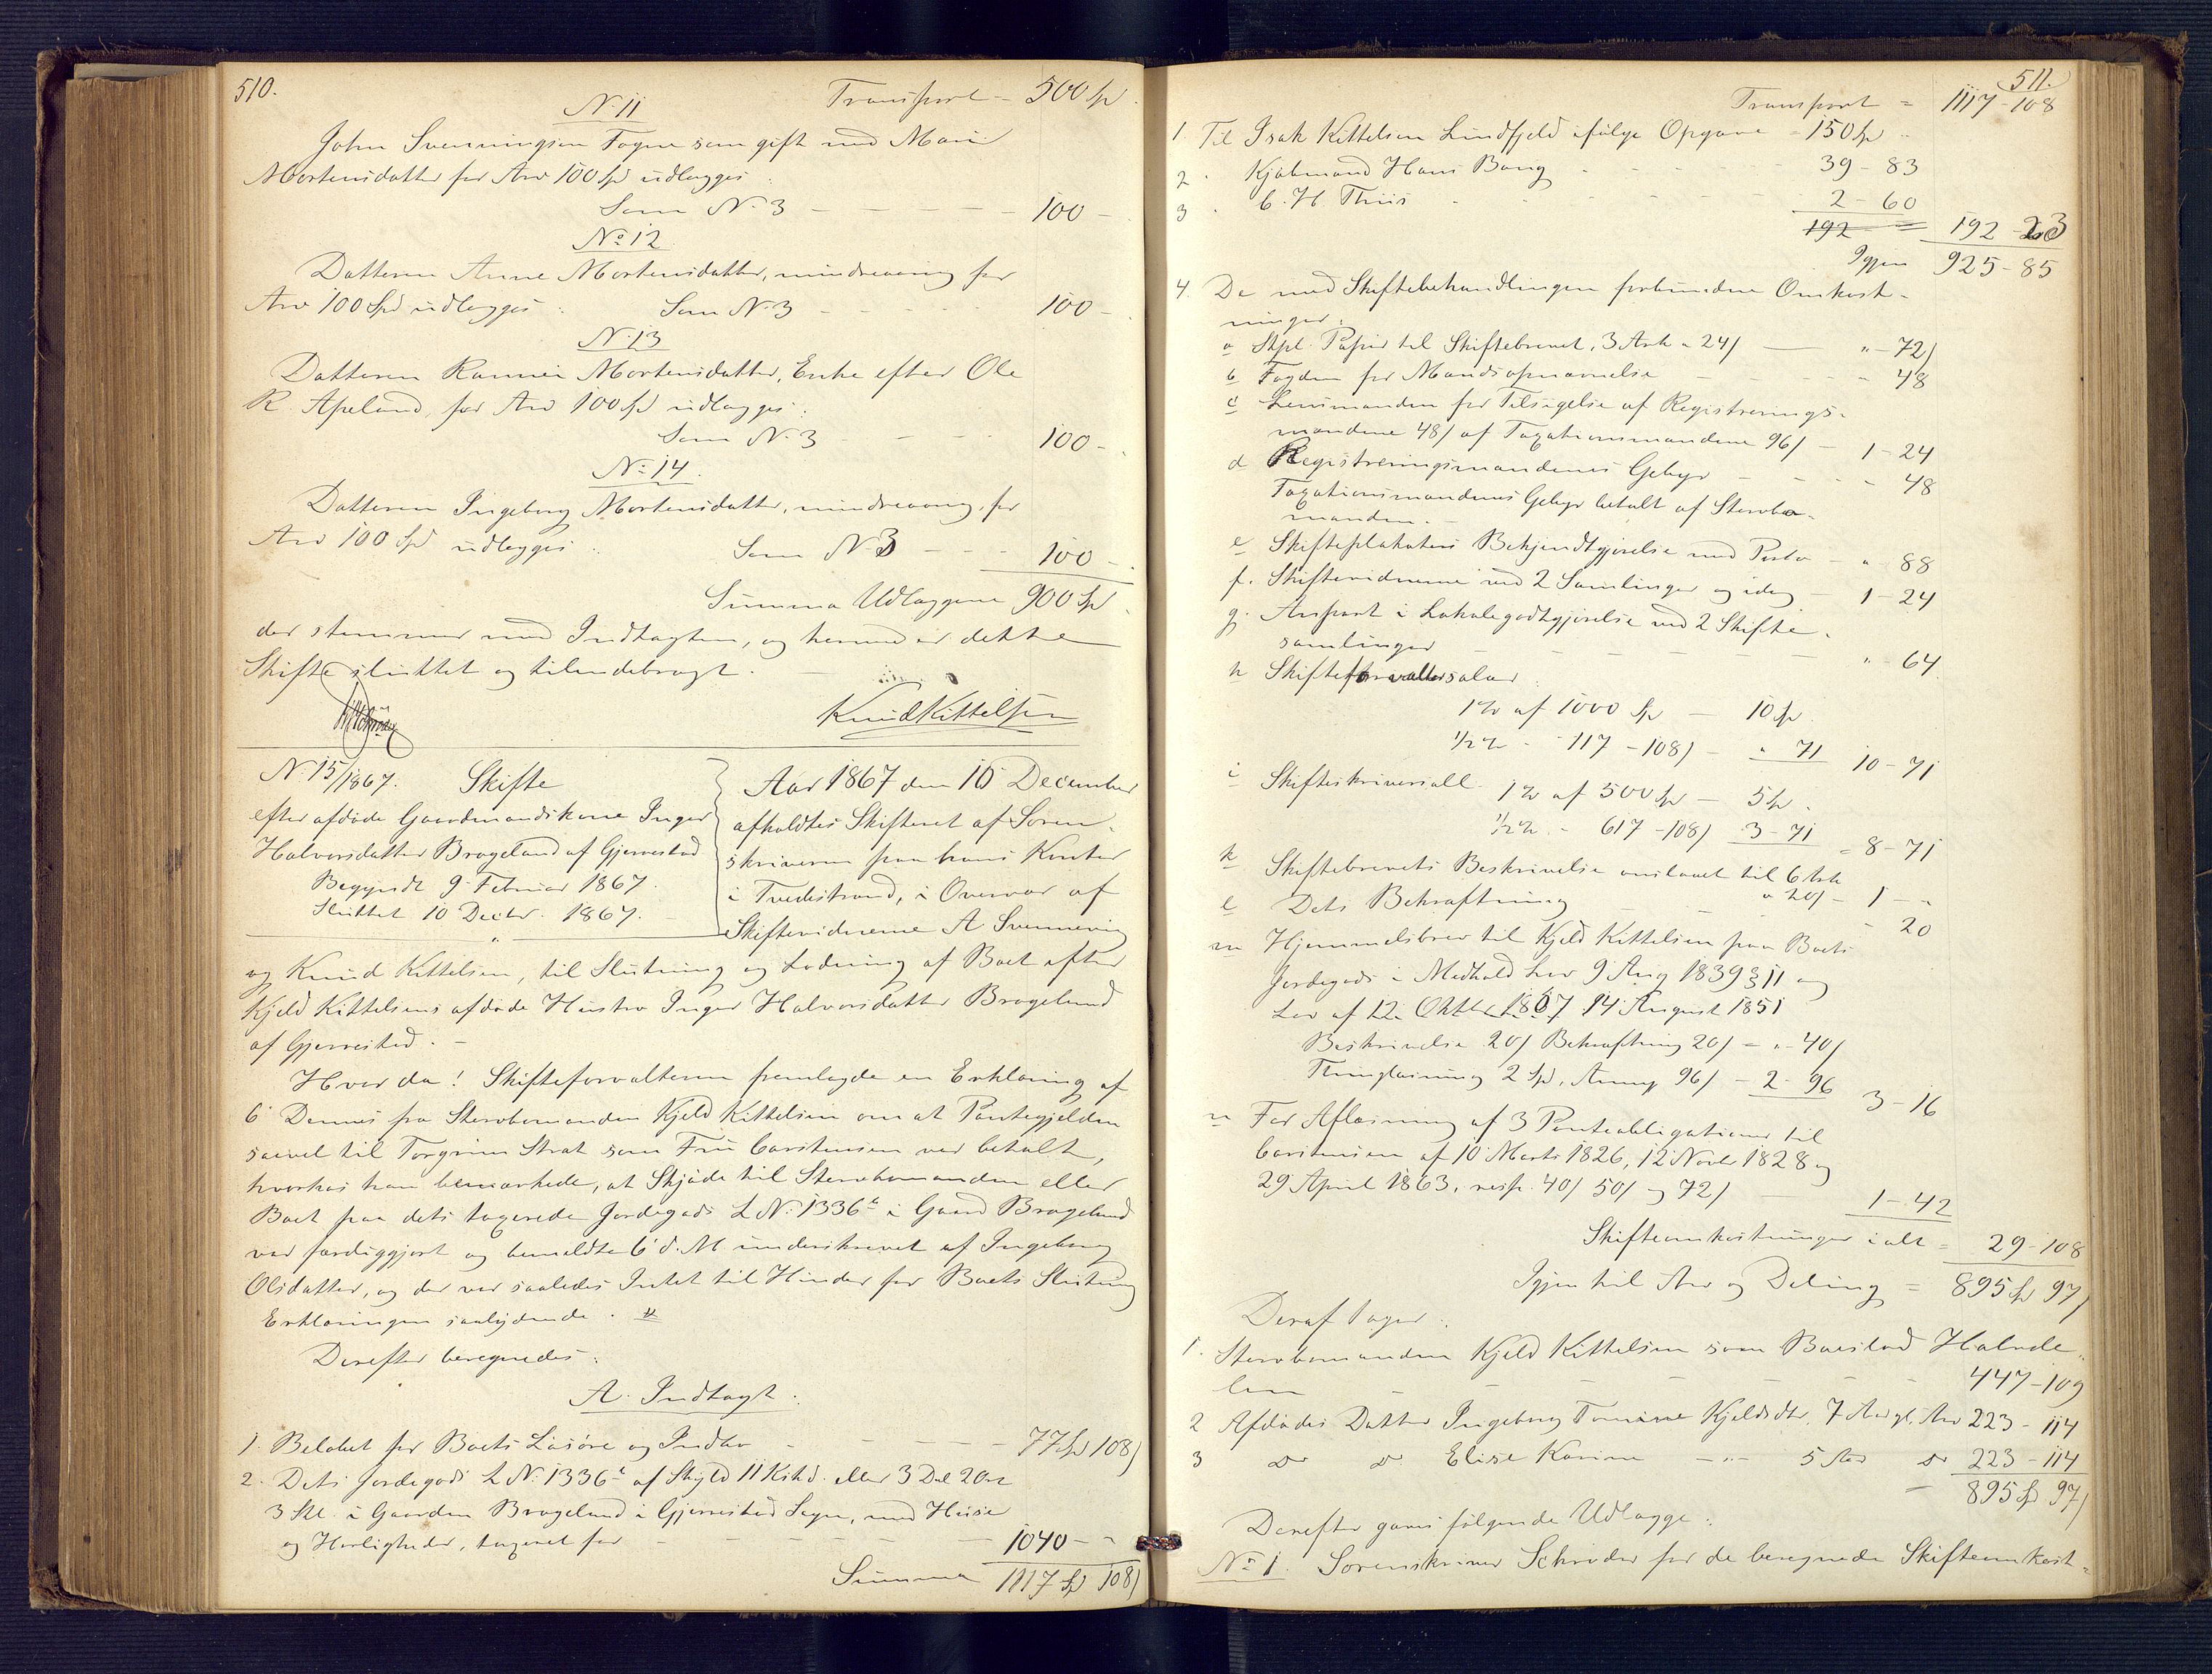 510.
Transport - 500 Sp
N: 11
John Svenningsen Fogne som gift med Mari
Mortensdatter for Arv 100 Spd udlægges:
Som N: 3 - - - - - 100 -
No 12
Datteren Anne Mortensdatter, mindreaarig for
Arv 100 Spd udlægges: Som N: 3 - - - 100 -
N: 13
Datteren Karine Mortensdatter, Enke efter Ole
K Apeland, for Arv 100 Spd udlægges:
Som N: 3 - - - 100 -
No 14
Datteren Ingeborg Mortensdatter, mindreaarig, for
Arv 100 Spd udlægges: Som N: 3 - - - 100 -
Summa Udlæggene 900 Sp
der stemmer med Indtægten, og hermed er dette
Skifte sluttet og tilendebragt.
Knud Kittelsen
N: 15/1867. Skifte
efter afdøde Gaardmandskone Inger
Halvorsdatter Brageland af Gjerrestad
Begyndt 9 Februar 1867.
Sluttet 10 Decbr. 1867.
Aar 1867 den 10 December
afholdtes Skifteret af Soren-
skriveren paa hans Kontor
i Tvedestrand, i Overvær af
Skiftevidnerne A Svenning
og Knud Kittelsen, til Slutning og Lodning af Boet efter
Kjeld Kittelsens afdøde Hustro Inger Halvorsdatter Brageland
af Gjerrestad. -
Hvor da! Skifteforvalteren fremlagde en Erklæring af
6' Dennes fra Stervbomanden Kjeld Kittelsen om at Pantegjelden
saavel til Torgrim Strat som Fru Carstensen var betalt,
hvorhos han bemærkede, at Skjøde til Stervbomanden eller
Boet paa dets taxerede Jordegods L N: 1336 c i Gaard Brageland
var færdiggjort og bemeldte 6' d. M underskrevet af Ingeborg
Olsdatter, og der var saaledes Intet til Hinder for Boets Slutning
Erklæringen saalydende.
Derefter beregnedes:
A. Indtægt:
1. Beløbet for Boets Løsøre og Indbo - - - - - 77 Sp 108/
2. Dets Jordegods L N: 1336 c af Skyld 11 Kshd. eller 3 Dal 2 Ort
3 Skl. i Gaarden Brageland i Gjerrestad Sogn, med Huse
og Herligheder, taxeret for - - - - 1040 - "
Summa 1117 Sp 108/
511.
Transport = 1117 - 108
1. Til Isak Kittelsen Lindfjeld ifølge Opgave - 150 Sp "
2 " Kjøbmand Hans Bang - - - 39 - 83
3 " C. H. Thiis - - - 2 - 60
192 = 192 - 23
Igjen 925 - 85
4. De med Skiftebehandlingen forbundne Omkost-
ninger.
a Stpl. Papir til Skiftebrevet, 3 Ark a 24/ — " - 72/
b Fogden for Mandsopnævnelse - - - - 48
c Lensmanden for Tilsigelse af Registrerings-
mændene 48/ af Taxationsmændene 96/ - 1 - 24
d Registreringsmændenes Gebyr - - - " 48
Taxationsmændenes Gebyr betalt af Stervbo-
manden. -
e Skifteplakatens Bekjendtgjørelse med Porto - " 88
f. Skiftevidnerne ved 2 Samlinger og idag - 1 - 24
g. Anpart i Lokalegodtgjørelse ved 2 Skifte-
samlinger - - - - - - " - 64
h Skifteforvaltersalær:
1% af 1000 Sp — 10 Sp.
1/2 % - 117 - 108/ - " 71 10 - 71
i Skifteskriversall.
1% af 500 Sp — 5 Sp.
1/2 % - 617 - 108/ 3 - 71 = 8 - 71
k Skiftebrevets Beskrivelse omlavet til 6 Ark
a 20/ - 1 - "
l Dets Bekræftning - - - - 20
m Hjemmelsbrev til Kjeld Kittelsen paa Boets
Jordegods i Medhold Lov 9 Aug 1839 § 11 og
Lov af 12. Oktbr 1857 14 August 1851
Beskrivelse 20/ Bekræftning 20/ = " - 40/
Thinglæsning 2 Spd, Anmp 96/ - 2 - 96 3 - 16
n For Aflæsning af 3 Panteobligationer til
Carstensen af 10 Marts 1826, 12 Novbr 1828 og
29 April 1863, resp. 40/ 50/ og 72/ 1 - 42
Skifteomkostninger ialt = 29 - 108
Igjen til Arv og Deling = 895 Sp 97/
Deraf tager:
1. Stervbomanden Kjeld Kittelsen som Boeslod Halvde-
len - - - - - - 447 - 109
2 Afdødes Datter Ingeborg Tomine Kjeldsdtr. 7 Aar gl. Arv 223 - 114
3 Do Do Elise Karine - " - 5 Aar Do 223 - 114
895 Sp 97/
Derefter gaves følgende Udlægge:
No 1. Sorenskriver Schrøder for de beregnede Skifteomkost-